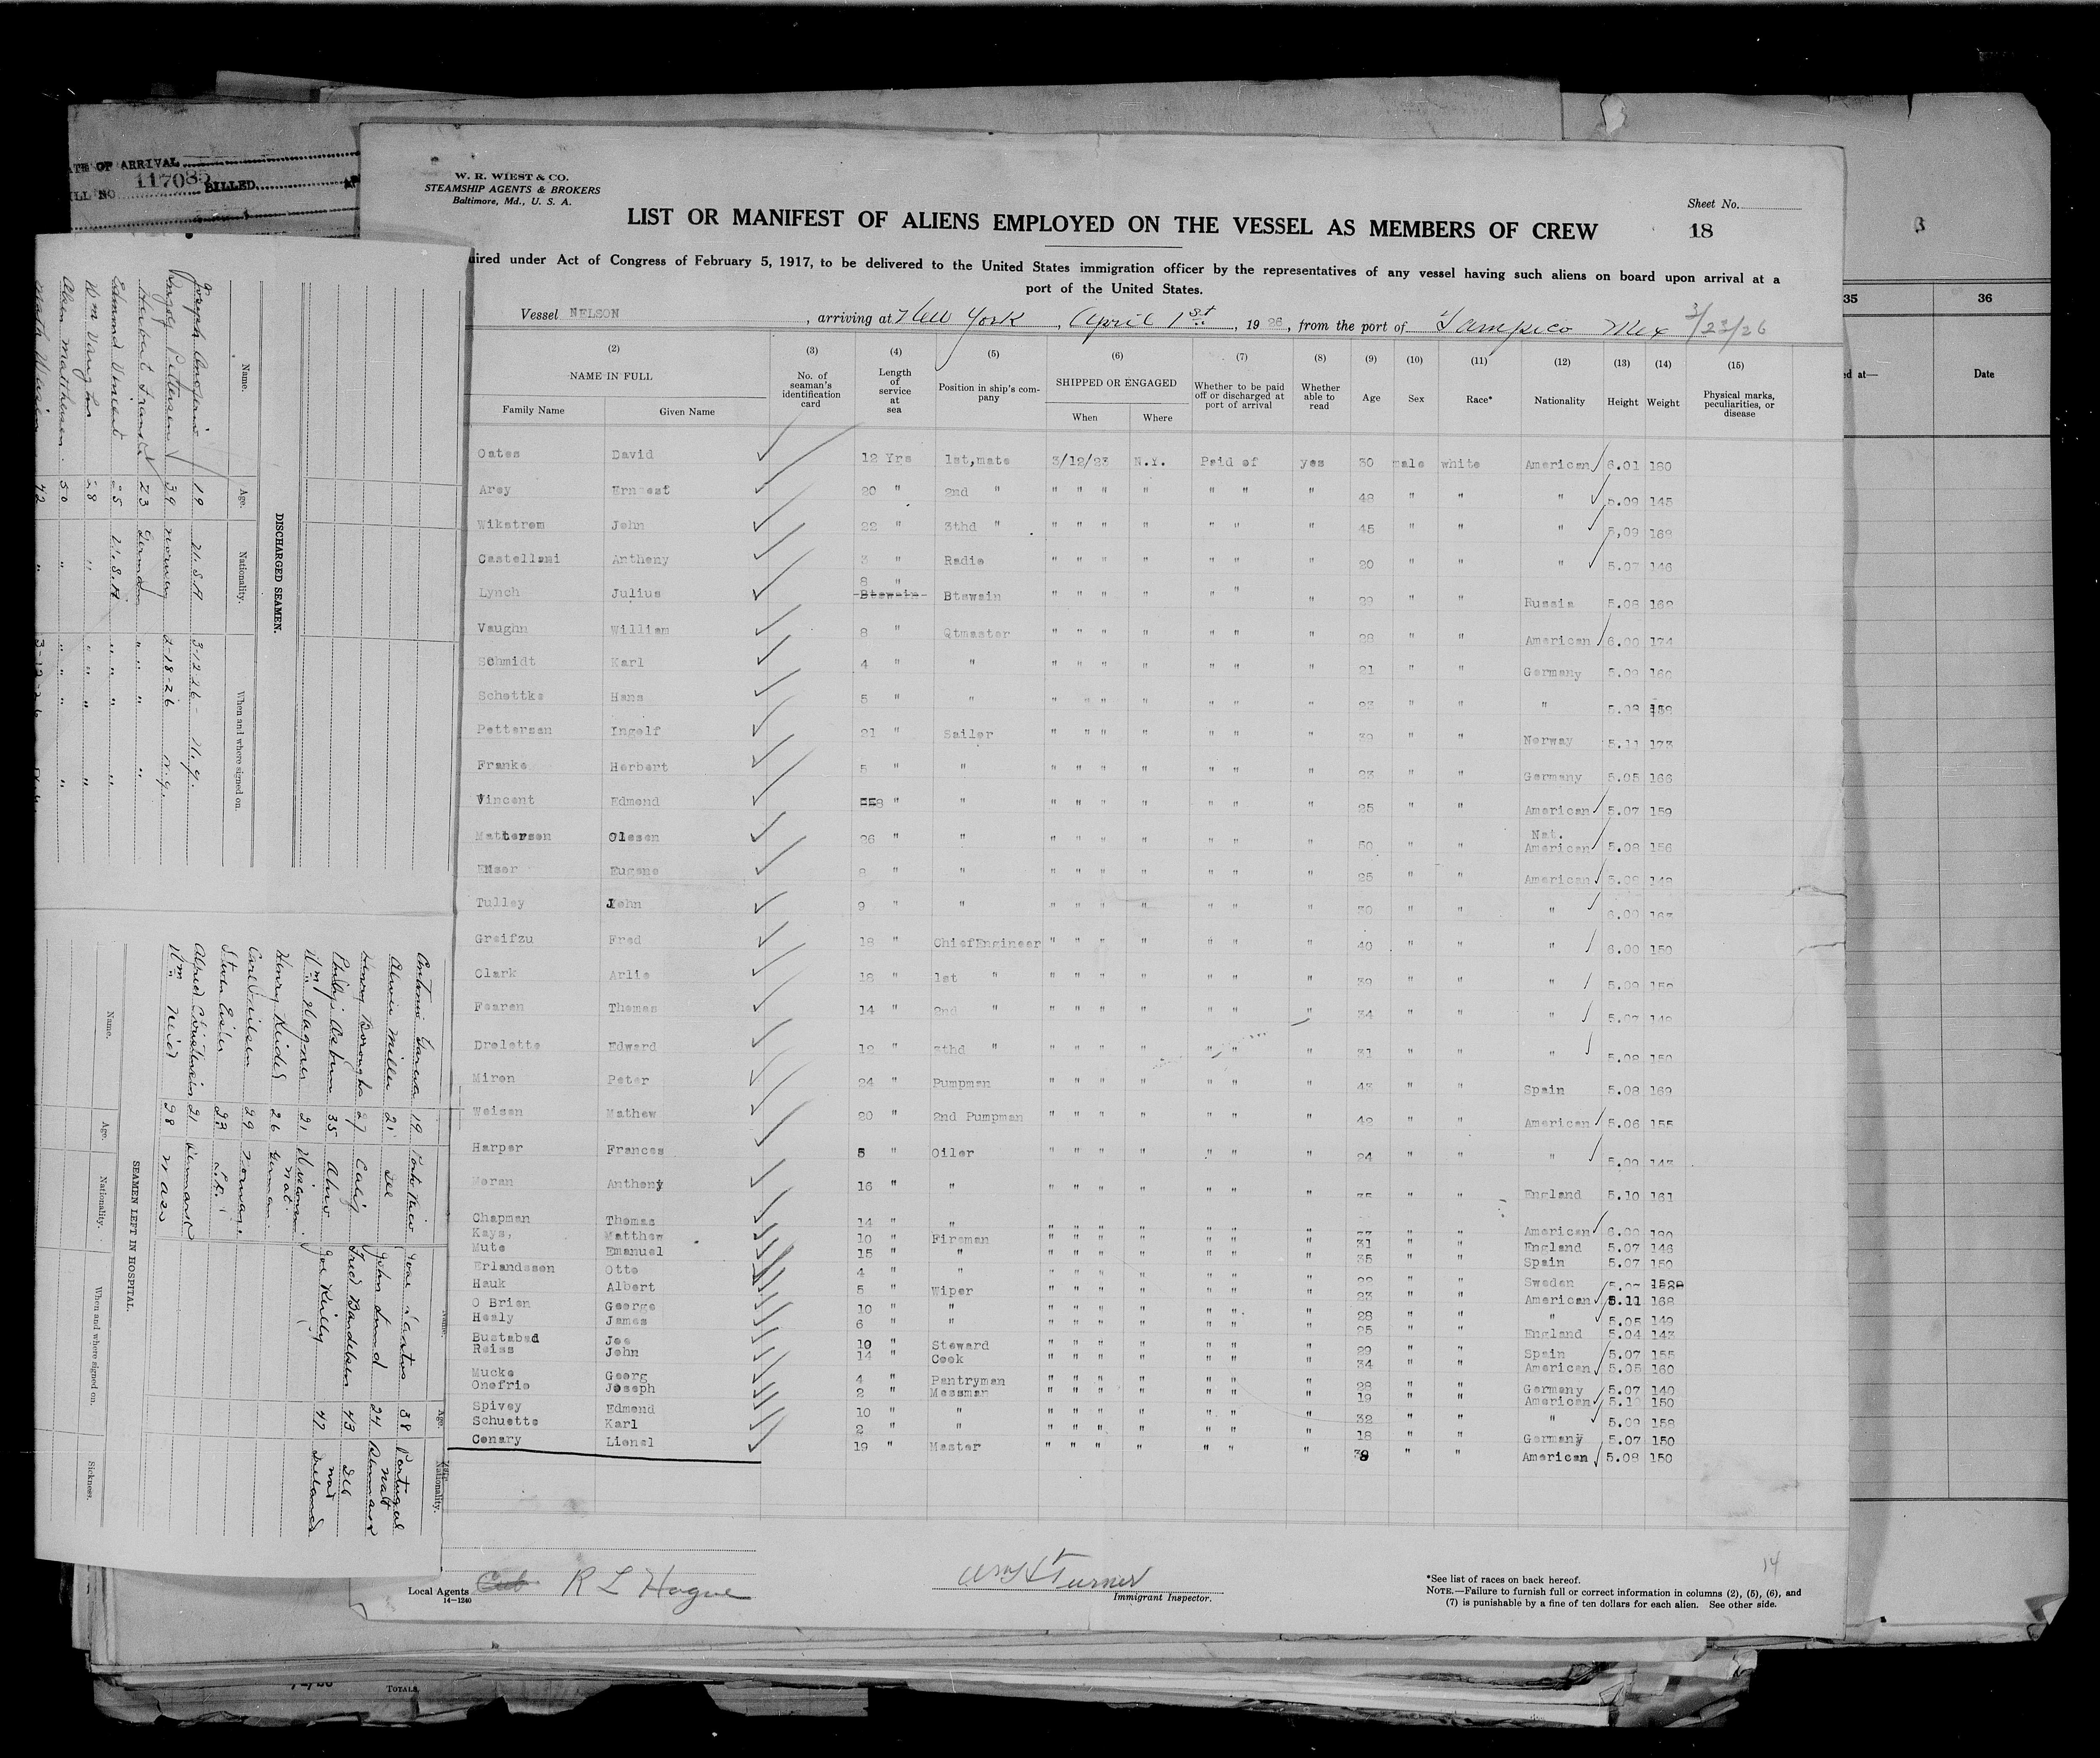 W. R. WIEST & CO.
STEAMSHIP AGENTS & BROKERS
Baltimore, Md., U. S. A.
Sheet No.
18
LIST OR MANIFEST OF ALIENS EMPLOYED ON THE VESSEL AS MEMBERS OF CREW
uired under Act of Congress of February 5, 1917, to be delivered to the United States immigration officer by the representatives of any vessel having such aliens on board upon arrival at a
port of the United States.
Vessel NELSON, arriving at New York, April 1st, 1926, from the port of Tampico Mex 3/23/26
(2) (3) (4) (5) (6) (7) (8) (9) (10) (11) (12) (13) (14) (15)
NAME IN FULL No. of seaman's identification card Length of service at sea Position in ship's company SHIPPED OR ENGAGED Whether to be paid off or discharged at port of arrival Whether able to read Age Sex Race* Nationality Height Weight Physical marks, peculiarities, or disease
Family Name Given Name When Where
Oates David 12 Yrs 1st,mate 3/12/23 N.Y. Paid of yes 30 male white American 6.01 180
Arey Ernest 20 " 2nd " " " " " " " " 48 " " " 5.09 145
Wikstrom John 22 " 3thd " " " " " " " " 45 " " " 5,09 168
Castellani Anthony 3 " Radio " " " " " " " 20 " " " 5.07 146
Lynch Julius 8 " Btswain " " " " " " " 29 " " Russia 5.08 162
Vaughn William 8 " Qtmaster " " " " " " " 28 " " American 6.00 174
Schmidt Karl 4 " " " " " " " " " 21 " " Germany 5.09 160
Schottke Hans 5 " " " " " " " " " 23 " " "
Petterson Ingolf 21 " Sailor " " " " " " " 39 " " Norway 5.11 173
Franke Herbert 5 " " " " " " " " " 23 " " Germany 5.05 166
Vincent Edmond 8 " " " " " " " " " 25 " " American 5.07 159
Matterson Olesen 26 " " " " " " " " " 50 " " Nat. American 5.08 156
Enser Eugene " " " " " " " " " 25 " " American
Tulley John 9 " " " " " " " " " 30 " " " 6.00 163
Greifzu Fred 18 " ChiefEngineer " " " " " " " 40 " " " 6.00 150
Clark Arlie 18 " 1st " " " " " " " " 39 " " "
Fearen Thomas 14 " 2nd " " " " " " " " 34 " " "
Drolette Edward 12 " 3thd " " " " " " " " 31 " " " 5.08 150
Miron Peter 24 " Pumpman " " " " " " " 43 " " Spain 5.08 169
Weisen Mathew 20 " 2nd Pumpman " " " " " " " 42 " " American 5.06 155
Harper Frances 5 " Oiler " " " " " " " 24 " " " 5.09 143
Moran Anthony 16 " " " " " " " " " " " England 5.10 161
Chapman Thomas 14 " " " " " " " " " 33 " " American 6.00
Kays, Matthew 10 " Fireman " " " " " " " 31 " " England 5.07 146
Mute Emanuel 15 " " " " " " " " " 35 " " Spain 5.07 150
Erlandssen Otto 4 " " " " " " " " " " " Sweden 5.07
Hauk Albert 5 " Wiper " " " " " " " 23 " " American 5.11 168
O Brien George 10 " " " " " " " " " 28 " " " 5.05 149
Healy James 6 " " " " " " " " " 25 " " England 5.04 143
Bustabad Joe 10 " Steward " " " " " " " 29 " " Spain 5.07 155
Reiss John 14 " Cook " " " " " " " 34 " " American 5.05 160
Mucke Georg 4 " Pantryman " " " " " " " 28 " " Germany 5.07 140
Onofrio Joseph 2 " Messman " " " " " " " 19 " " American 5.10 150
Spivey Edmond 10 " " " " " " " " " 32 " " " 5.09 158
Schuette Karl 2 " " " " " " " " " 18 " " Germany 5.07 150
Conary Lionel 19 " Master " " " " " " " 39 " " American 5.08 150
Local Agents R L Hague
14—1240
Turner
Immigrant Inspector.
*See list of races on back hereof.
NOTE.—Failure to furnish full or correct information in columns (2), (5), (6), and
(7) is punishable by a fine of ten dollars for each alien. See other side.
14
ATE OF ARRIVAL
ILL NO 117085 BILLED
DISCHARGED SEAMEN.
Name. Age. Nationality. When and where signed on.
Joseph Onofrio 19 U.S.A 3-12-26 N.Y.
Ingolf Pettersen 39 Norway 2-18-26 N.Y.
Herbert Franke 23 German " " "
Edmund Vincent 25 U.S.A " " "
Wm Vaughn 28 " " " "
Olsen Mathesen 50 " " " "
Math Weisen 42 "
SEAMEN LEFT IN HOSPITAL.
Name. Age. Nationality. When and where signed on. Sickness.
Antonio Garcia 19 Porto Rico
Alwin Miller 21
Henry Borough 27 Calif
Philip Osburn 35 Ohio
Wm Wagner 21 Wisconsin
Henry Kidel 26 German
Carl Neilsen 29 Norway
Sven Eisler 23
Alfred Christensen 21 Denmark
Wm Neid 28 Mass
Jose Santos 38 Portugal
John Lund 24 Denmark
Fred Bandelsen 43
Joe Reilly 47 Ireland
35 36
d at— Date
TOTALS